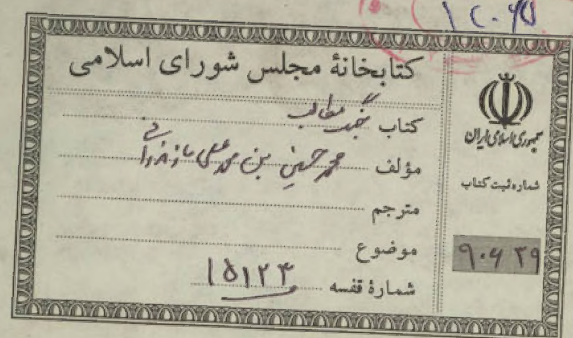 ۱۲۰۶۵
کتابخانهٔ مجلس شورای اسلامی
کتاب
مؤلف محمد حسین بن محمد علی مازندرانی
مترجم
موضوع
شمارهٔ قفسه ۱۵۱۲۳
جمهوری اسلامی ایران
شماره ثبت کتاب
۹۰۶۳۹